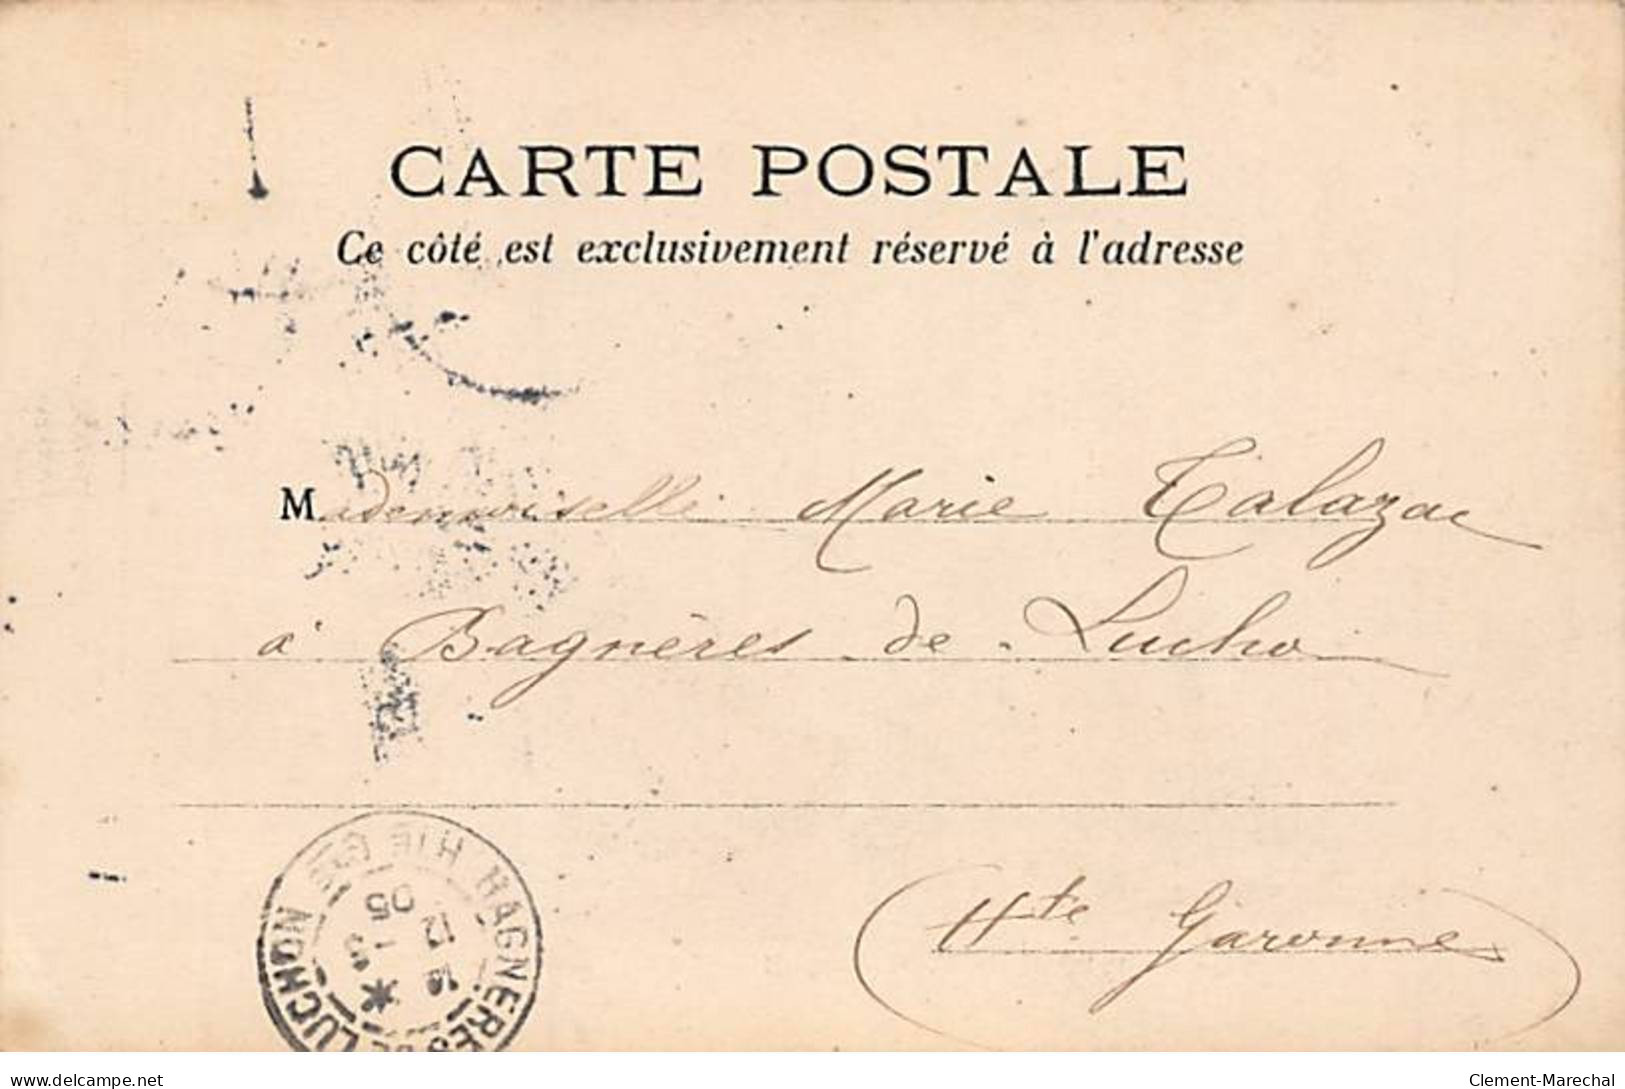 CARTE POSTALE
Ce côté est exclusivement réservé à l'adresse
Mademoiselle Marie Talazac
à Bagnères de Luchon
Hte Garonne
BAGNERES DE LUCHON Hte Gne
16
12 -3
05
delcampe.net
Clement-Marechal